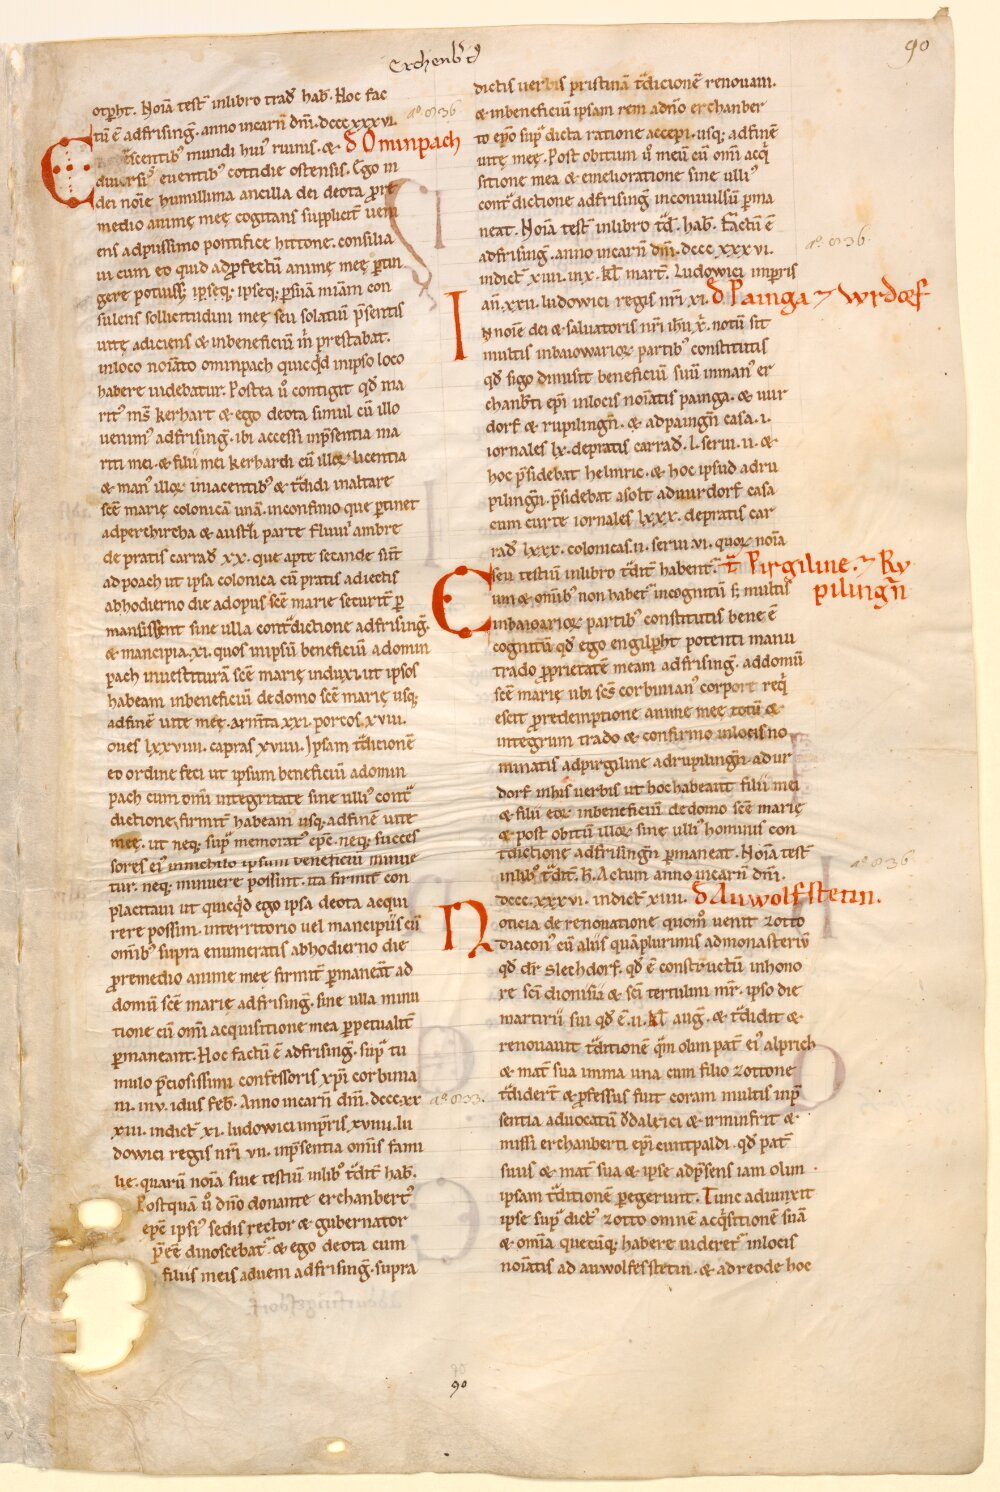 90
Erchenb̄t
otp̄ht. Noīa test̄ inlibro trad̄ hab̄. Hoc fac
tū ē adfrising̅. anno incarn̄ dn̄i. dccc xxxvi. aº 836
Crescentib; mundi hui' ruinis. & đ Ominpach
diuersis euentib; cottidie ostensis. Ego in
dei noīe humillima ancilla dei deota pro re
medio animę meę cogitans supplicit̄ veni
ens adpiissimo pontifice hittone. consilia
ui cum eo quid adp̄fectū animę meę p̄tin
gere potuiss&. ipseq; ipseq; p̄sn̄ā miām con
sulens sollicitudini meę seu solatiū p̄sentis
uitę adiciens & inbeneficiū m̄ prestabat.
inloco noīato ominpach quicq̄d inipso loco
habere uidebatur. Postea ū contigit qd̄ ma
rit' m̄s kerhart & ego deota simul cū illo
uenim' adfrising̅. ibi accessi inp̄sentia ma
riti mei. & filii mei kerhardi cū illoꝝ licentia
& man' illoꝝ iniacentib; & t̄didi inaltare
scē marię colonicā unā. inconfinio que p̄tinet
adperchircha & austli parte fluuii ambre
de pratis carrad̄ xx. que apte secande sūt
ad poach ut ipsa colonica cū pratis adiectis
abhodierno die adopus scē marie securit̄ p̄
mansissent sine ulla cont̄dictione adfrising̅.
& mancipia. xi. quos inipsū beneficiū adomin
pach inuestiturā scē marię induxi. ut ipsos
habeam inbeneficiū dedomo scē marię usq;
adfinē uite meę. armt̄a xxi. porcos. xviii.
oues lxxviiii. capras xviiii. Ipsam t̄dicionē
eo ordine feci ut ipsum beneficiū adomin
pach cum om̄i integritate sine ulli' cont̄
dictione, firmit̄ habeam usq; adfinē uite
meę. ut neq; sup̄ memorat' ep̄c. neq; succes
sores ei' innichilo ipsum beneficiū minue
tur. neq; minuere possint. ita firmit̄ con
placitaui ut quicq̄d ego ipsa deota acqui
rere possim. interritorio uel mancipiis cū
om̄ib; supra enumeratis abhodierno die
premedio anime meę firmit̄ p̄maneāt ad
domū scē marię adfrising̅. sine ulla minu
tione cū om̄i acquisitione mea p̄petualit̄
p̄maneant. Hoc factū ē adfrising̅. sup̄ tu
mulo p̄ciosissimi confessoris xp̄i corbinia
ni. inv. idus feb̄. Anno incarn̄ dn̄i. dccc xx aº 833.
xiii. indict̄ xi. ludowici imp̄ris xviiii. lu
dowici regis nr̄i vii. inp̄sentia om̄is fami
lię. quarū noīa siue testiū inlib̄ t̄dit̄ hab̄.
Postquā ū dn̄o donante erchanbert'
ep̄c ipsi' sedis rector & gubernator
p̄ēē dinoscebat'. & ego deota cum
filiis meis adueni adfrising̅. supra
dictis uerbis pristinā t̄dicionē renouaui.
& inbeneficiū ipsam rem adn̄o erchanber
to ep̄o sup̄ dicta ratione accepi. usq; adfinē
uitę meę. Post obitum ū meū cū om̄i acq̄
sitione mea & emelioratione sine ulli'
cont̄dictione adfrising̅ inconuulsū p̄ma
neat. Noīa test̄ inlibro t̄d̄. hab̄. factū ē
adfrising̅. anno incarn̄ dn̄i. dccc xxxvi. aº 836.
indict̄ xiiii. inx. kl̄ mart̄. Ludowici imp̄ris
an̄. xxii. ludowici regis nr̄i xi. đ Painga ⁊ wrdorf
In noīe dei & saluatoris nr̄i ih̄u x̄. notū sit
multis inbaiowarioꝝ partib; constitutis
qd̄ sigo dimisit beneficiū suū inman' er
chanb̄ti ep̄i inlocis noīatis painga. & uur
dorf & rupilingn̄. & adpaingn̄ casa. i.
iornales lx. depratis carrad̄. l. serui. ii. &
hoc p̄sidebat helmric. & hoc ipsud adru
pilingn̄. p̄sidebat asolt aduurdorf casa
cum curte iornales lxxx. depratis car
rad̄ lxxx. colonicas. ii. serui vi. quoꝝ noīa
seu testiū inlibro t̄dit̄ habent̄. t̄ Pirgiline. ⁊ Ry
Cum & om̄ib; non habet' incognitū s; multis pilingn̄
inbaioarioꝝ partib; constitutis bene ē
cognitū qd̄ ego engilp̄ht potenti manu
trado p̄prietatē meam adfrising̅. addomū
scē marię ubi sc̄s corbinian' corpore req̄
escit p̄redemptione anime meę totū &
integrum trado & confirmo inlocis no
minatis adpirgiline adrupilingn̄. adur
dorf inhis uerbis ut hoc habeant filii mei
& filii eoꝝ inbeneficiū dedomo scē marię
& post obitū illoꝝ sine ulli' hominis con
t̄dictione adfrisingn̄ p̄maneat. Noīa test̄
inlib̄ t̄dit̄. h̄. Actum anno incarn̄ dn̄i. aº 836
dccc. xxxvi. indict̄ xiiii. đ Auwolfstetin.
Noticia de renouatione quom̄ uenit zotto
diacon' cū aliis quāplurimis admonasteriū
qd̄ dr̄ slechdorf. qd̄ ē constructū inhono
re sc̄i dionisii & sc̄i tertulini mr̄. ipso die
martirii sui qd̄ ē. ii. kl̄ aug̅. & t̄didit &
renouauit t̄ditionē q̄m olim pat̄ ei' alprich
& mat̄ sua imma una cum filio zottone
t̄didert̄ & p̄fessus fuit coram multis inp̄
sentia aduocatū ŏdalrici & irminfrit &
missi erchanberti ep̄i cuntpaldi. qd̄ pat̄
suus & mat̄ sua & ipse adp̄sens iam olim
ipsam t̄ditionē p̄egerunt. Tunc adiunxit
ipse sup̄ dict' zotto omnē acq̄sitionē suā
& om̄ia quecūq; habere uideret̄ inlocis
noīatis ad auwolfesstetin. & adreode hoc
90
90